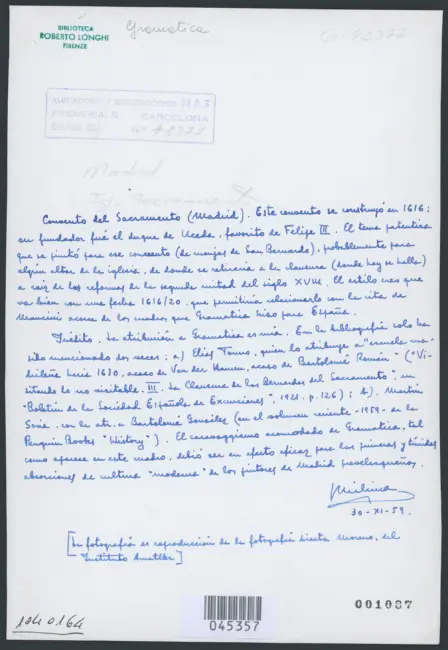 BIBLIOTECA
ROBERTO LONGHI
FIRENZE
Gramatica
AMPLIACIONES Y REPRODUCCIONES MAS
FRENERIA, 5 BARCELONA
Nº
Madrid
Convento del Sacramento (Madrid). Este convento se construyó en 1616;
su fundador fué el duque de Uceda, favorito de Felipe III. El tema patentiza
que se pintó para ese convento (de monjas de San Bernardo), probablemente para
algún altar de la iglesia, de donde se retiraría a la clausura (donde hoy se halla)
a raíz de las reformas de la segunda mitad del siglo XVIII. El estilo creo que
va bien con una fecha 1616/20, que permitiría relacionarlo con la cita de
Mancini acerca de los cuadros que Gramatica hizo para España.
Inédito. La atribución a Gramatica es mía. En la bibliografía solo ha
sido mencionado dos veces: a) Elías Tormo, quien lo atribuye a "escuela ma-
drileña hacia 1610, acaso de Van der Hamen, acaso de Bartolomé Román" ("Vi-
sitando lo no visitable. III. La Clausura de las Bernardas del Sacramento", en
"Boletín de la Sociedad Española de Excursiones", 1921. p. 126); b). Martín
Soria, con la atr. a Bartolomé González (en el volumen reciente -1959- de la
Penguin Books "History"). El caravaggismo acomodado de Gramatica, tal
como aparece en este cuadro, debió ser en efecto eficaz para las primeras y tímidas
absorciones de cultura "moderna" de los pintores de Madrid prevelazqueños.
30-XI-59.
[La fotografía es reproducción de la fotografía directa Moreno, del
Instituto Amatller]
001087
1040164
045357